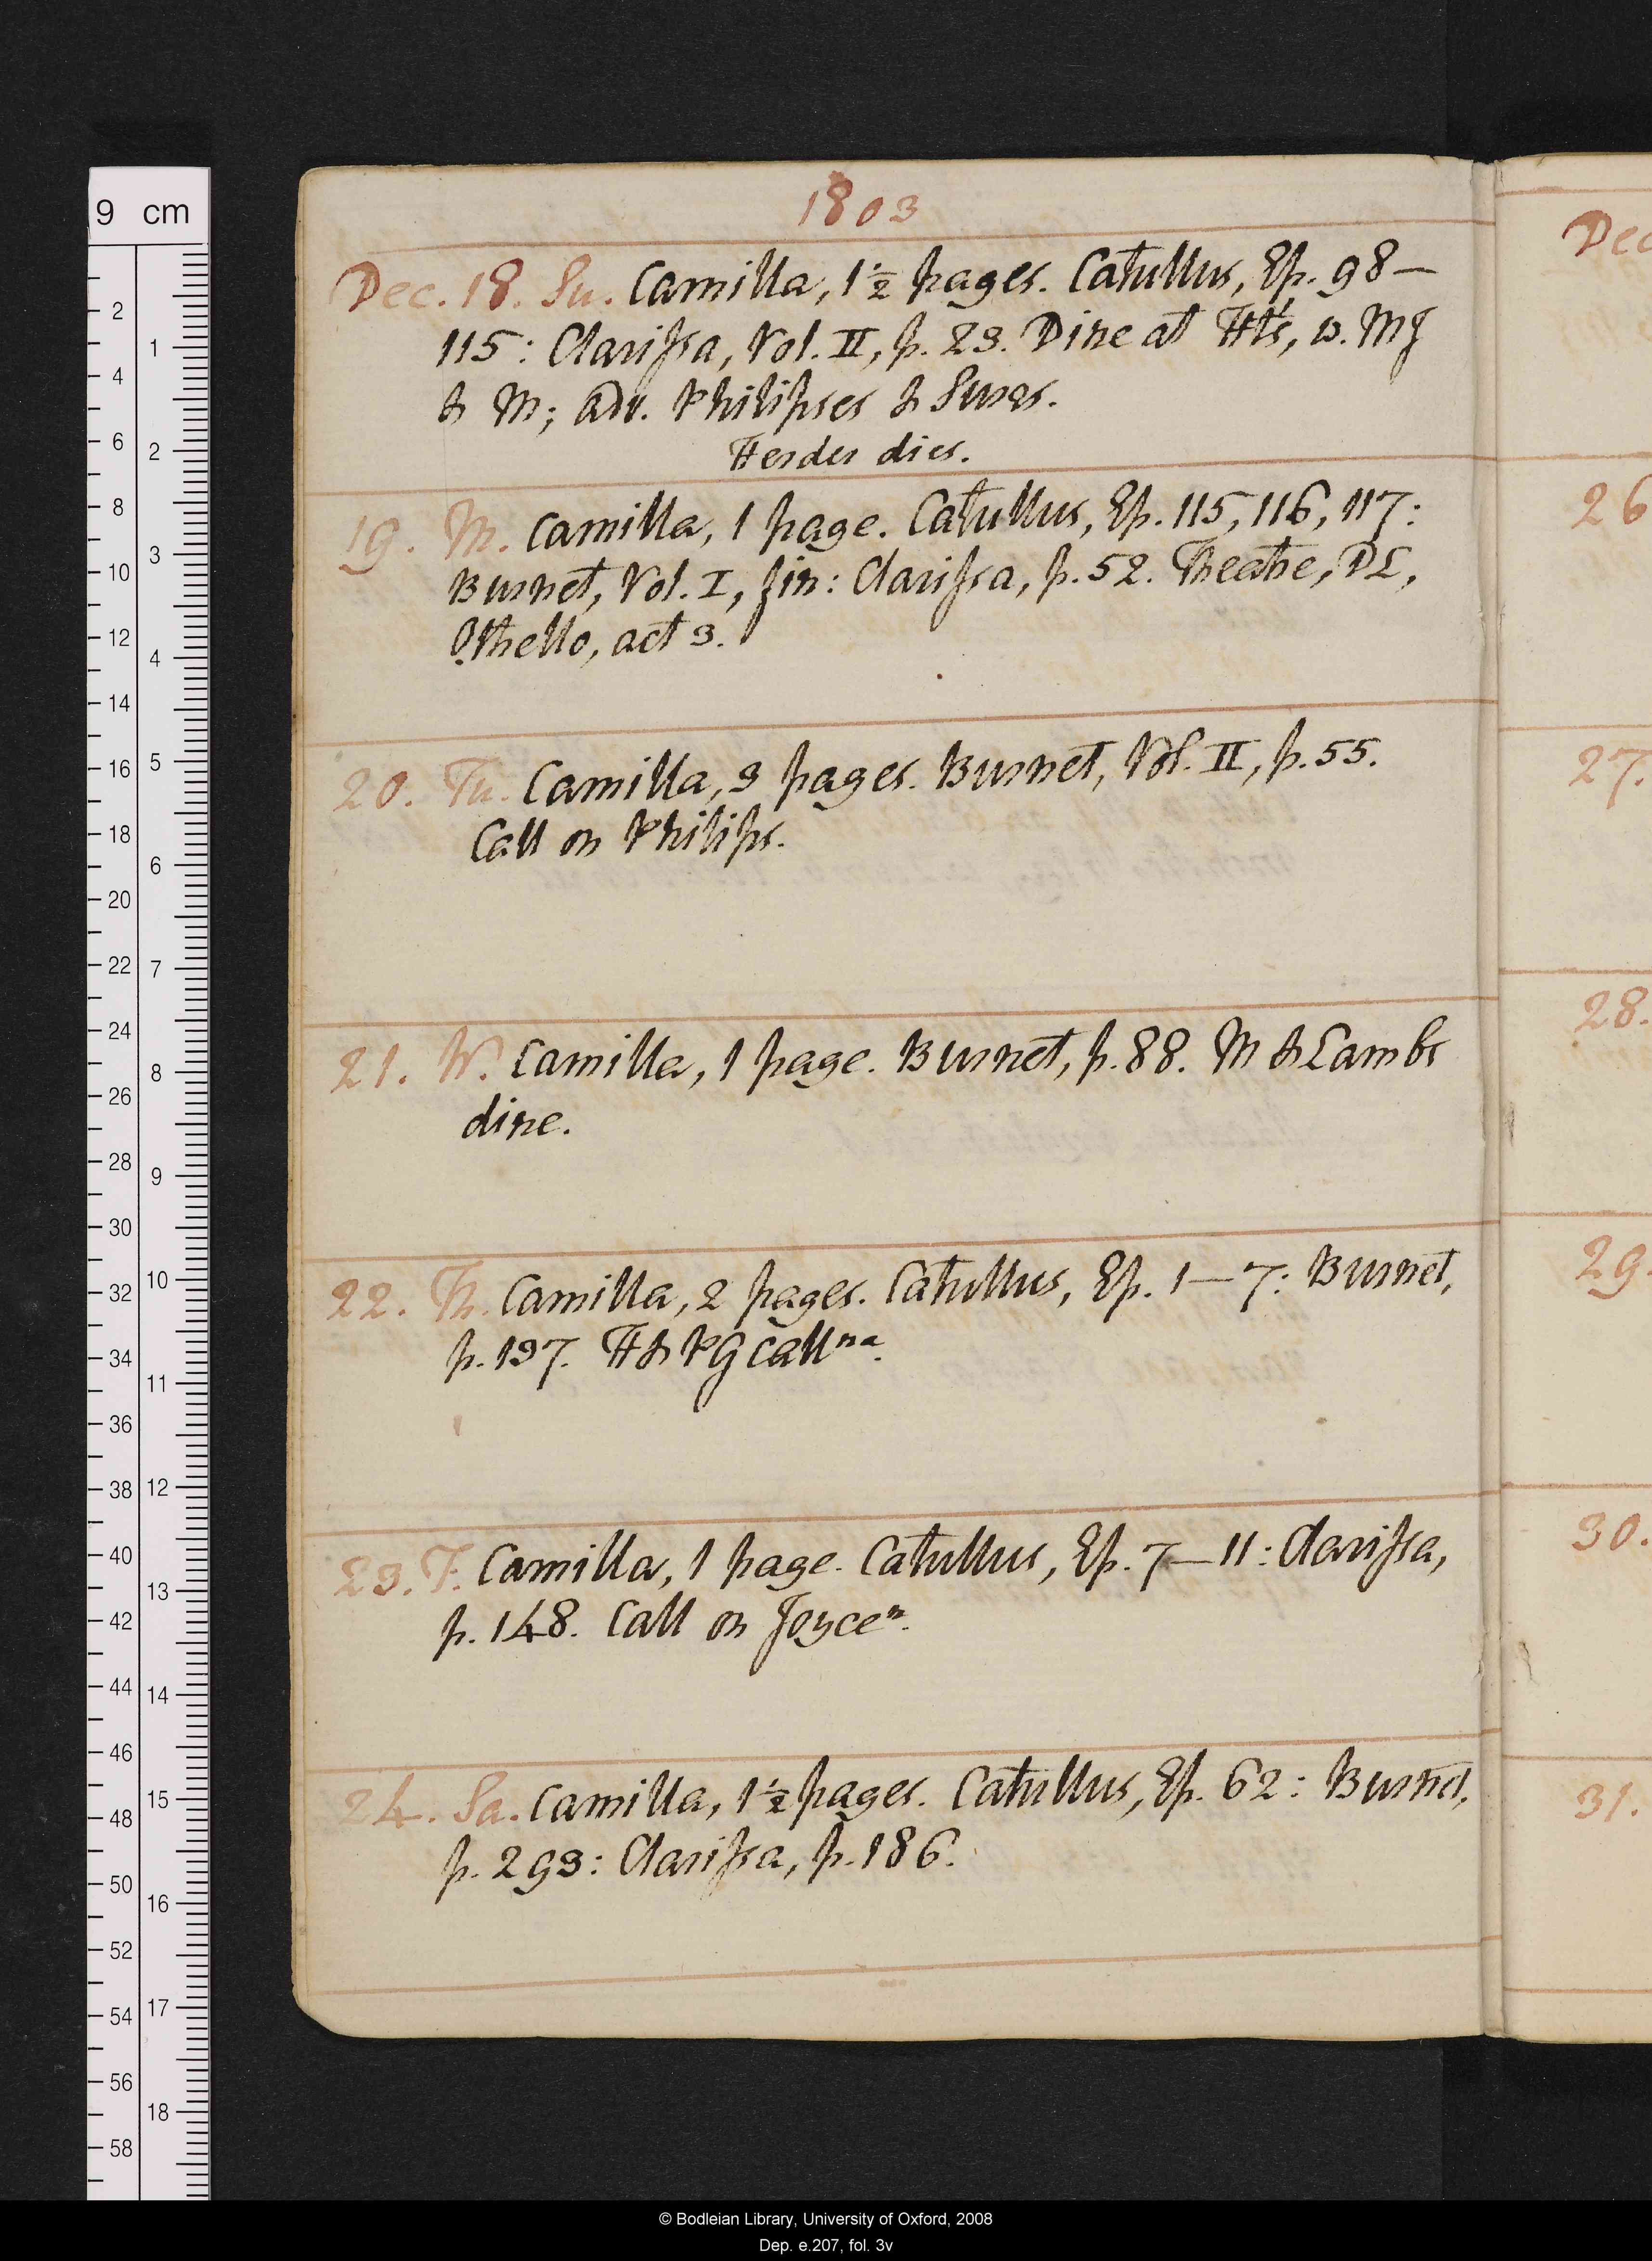 1803
Dec. 18. Su. Camilla, 1½ pages. Catullus, Ep. 98—
115: Clarissa, Vol. II, p. 23. Dine at Ht's, w. MJ
& M; adv. Philipses & Surrs.
Herder dies.
19. M. Camilla, 1 page. Catullus, Ep. 115, 116, 117:
Burnet, Vol. I, fin: Clarissa, p. 52. Theatre, DL,
Othello, act 3.
20. Tu. Camilla, 3 pages. Burnet, Vol. II, p. 55.
Call on Philips.
21. W. Camilla, 1 page. Burnet, p. 88. M & Lambs
dine.
22. Th. Camilla, 2 pages. Catullus, Ep. 1—7: Burnet,
p. 197. H & PG call na.
23. F. Camilla, 1 page. Catullus, Ep. 7—11: Clarissa,
p. 148. Call on Joyce n.
24. Sa. Camilla, 1½ pages. Catullus, Ep. 62: Burnet,
p. 293: Clarissa, p. 186.
Dec
26
27.
28.
29.
30.
31.
9 cm
2
4
6
8
10
12
14
16
18
20
22
24
26
28
30
32
34
36
38
40
42
44
46
48
50
52
54
56
58
1
2
3
4
5
6
7
8
9
10
11
12
13
14
15
16
17
18
© Bodleian Library, University of Oxford, 2008
Dep. e.207, fol. 3v